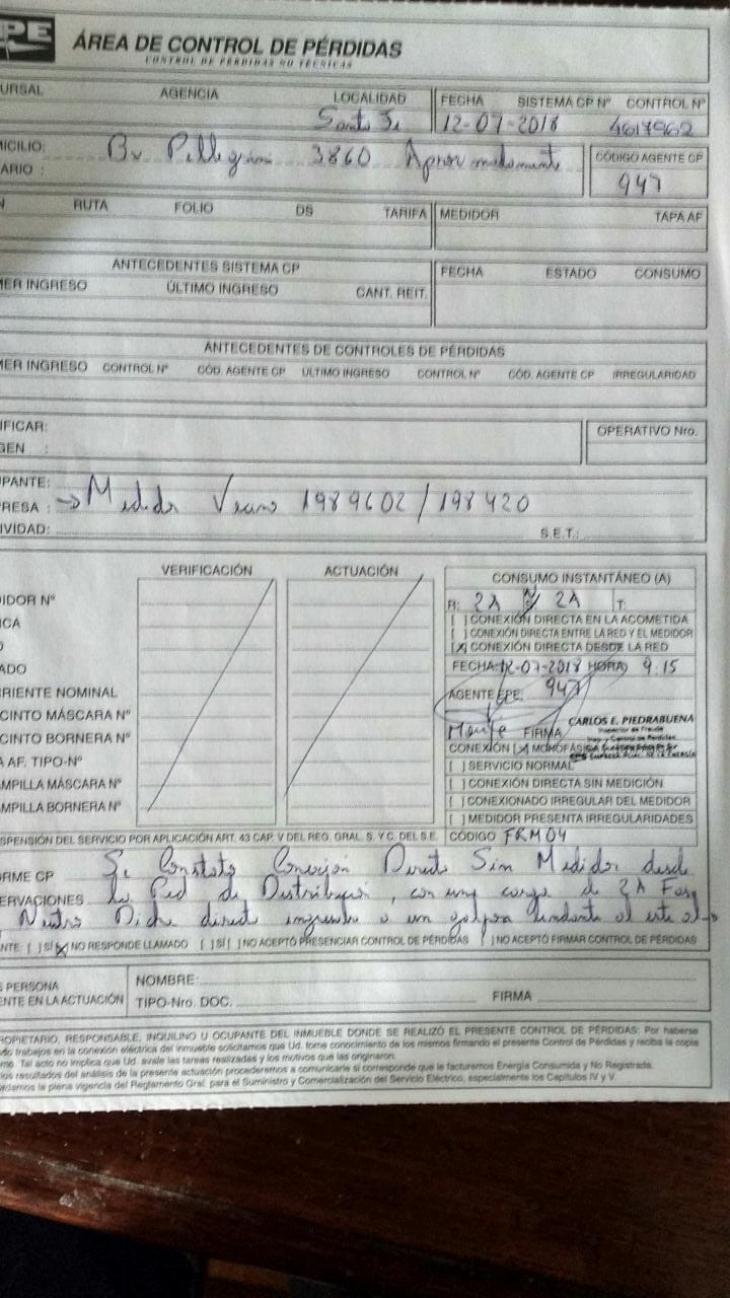 PE ÁREA DE CONTROL DE PÉRDIDAS
CONTROL DE PERDIDAS NO TECNICAS
URSAL AGENCIA LOCALIDAD FECHA SISTEMA CP Nº CONTROL Nº
Santa Fe 12-07-2018 4617962
MICILIO: Bv Pellegrini 3860 Aproximadamente CÓDIGO AGENTE CP
ARIO : 947
N RUTA FOLIO DS TARIFA MEDIDOR TAPA AF
ANTECEDENTES SISTEMA CP FECHA ESTADO CONSUMO
MER INGRESO ÚLTIMO INGRESO CANT. REIT.
ANTECEDENTES DE CONTROLES DE PÉRDIDAS
MER INGRESO CONTROL Nº CÓD. AGENTE CP ULTIMO INGRESO CONTROL Nº CÓD. AGENTE CP IRREGULARIDAD
IFICAR: OPERATIVO Nro.
GEN :
UPANTE:
RESA : → Medidor Vecino 1989602 / 198420
IVIDAD: S.E.T.:
VERIFICACIÓN ACTUACIÓN CONSUMO INSTANTÁNEO (A)
DIDOR Nº R: 2A N 2A T:
CA [ ] CONEXIÓN DIRECTA EN LA ACOMETIDA
O [ ] CONEXIÓN DIRECTA ENTRE LA RED Y EL MEDIDOR
[X] CONEXIÓN DIRECTA DESDE LA RED
ADO FECHA: 12-07-2018 HORA: 9.15
RRIENTE NOMINAL AGENTE EPE: 947
CINTO MÁSCARA Nº CARLOS E. PIEDRABUENA
CINTO BORNERA Nº FIRMA
A AF. TIPO-Nº CONEXIÓN [X] MONOFÁSICA
[ ] SERVICIO NORMAL
AMPILLA MÁSCARA Nº [ ] CONEXIÓN DIRECTA SIN MEDICIÓN
AMPILLA BORNERA Nº [ ] CONEXIONADO IRREGULAR DEL MEDIDOR
[ ] MEDIDOR PRESENTA IRREGULARIDADES
SPENSIÓN DEL SERVICIO POR APLICACIÓN ART. 43 CAP. V DEL REG. GRAL. S. Y C. DEL S.E. CÓDIGO FRM04
ORME CP Se Constato Conexion Directa Sin Medidor desde
ERVACIONES la Red de Distribucion, con una carga de 2A Fase
Neutro Dicha directa ingresaba a un galpon lindante al este al
NTE: [ ] SÍ [X] NO RESPONDE LLAMADO [ ] SÍ [ ] NO ACEPTÓ PRESENCIAR CONTROL DE PÉRDIDAS [ ] NO ACEPTÓ FIRMAR CONTROL DE PÉRDIDAS
S PERSONA NOMBRE:
ENTE EN LA ACTUACIÓN TIPO-Nro. DOC. FIRMA
ROPIETARIO, RESPONSABLE, INQUILINO U OCUPANTE DEL INMUEBLE DONDE SE REALIZÓ EL PRESENTE CONTROL DE PÉRDIDAS: Por haberse
do trabajos en la conexión eléctrica del inmueble solicitamos que Ud. tome conocimiento de los mismos firmando el presente Control de Pérdidas y reciba la copia
mo. Tal acto no implica que Ud. avale las tareas realizadas y los motivos que las originaron.
los resultados del análisis de la presente actuación procederemos a comunicarle si corresponde que le facturemos Energía Consumida y No Registrada.
rdamos la plena vigencia del Reglamento Gral. para el Suministro y Comercialización del Servicio Eléctrico, especialmente los Capítulos IV y V.